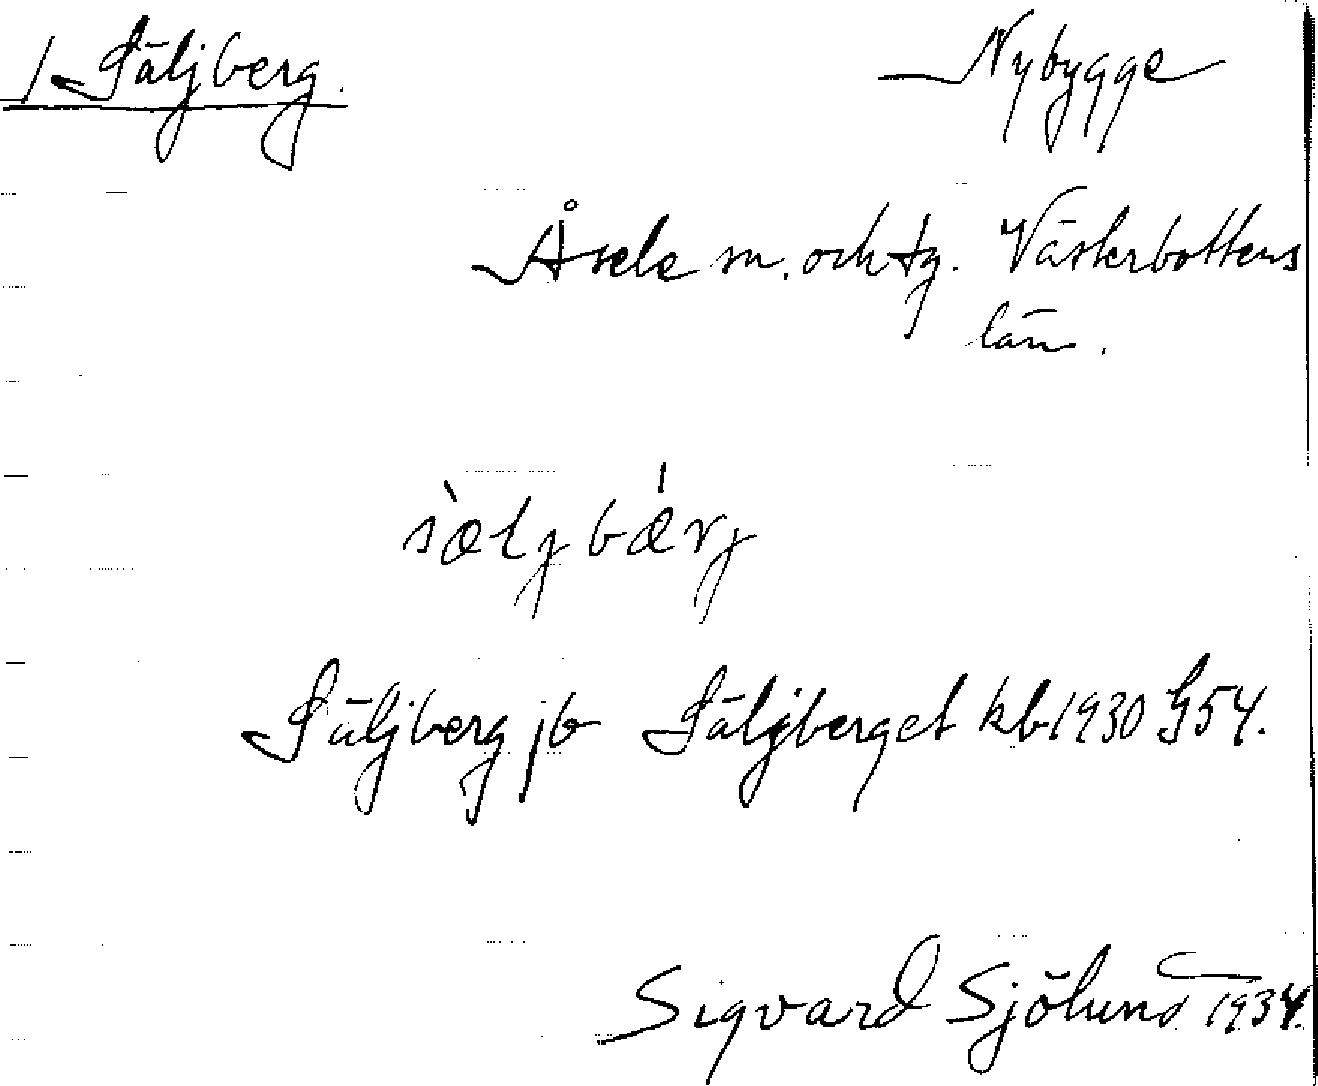 1 Säljberg. Nybygge
Åsele sn. och tg. Västerbottens
län.
sæ̀ljbǽrj
Säljberg jb Säljberget kb 1930 S54.
Sigvard Sjölund 1934.